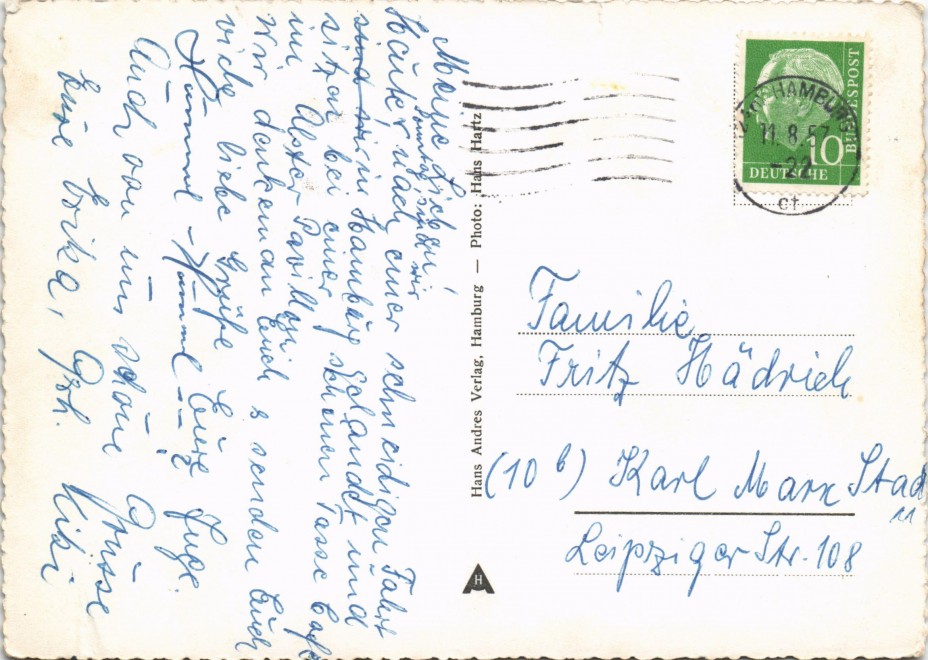 Meine Lieben!
Heute, nach einer schneidigen Fahrt
sind wir in Hamburg gelandet und
sitzen bei einer schönen Tasse Café
im Alster Pavillon
Wir denken an Euch & senden Euch
viele liebe Grüße Eure Inge.
Hummel - Hummel ---
Auch von uns schöne Grüsse
Eure Erika,
Hans Andres Verlag, Hamburg — Photo: Hans Hartz
H
HAMBURG
11.8.57
-22
ct
10
DEUTSCHE
BUNDESPOST
Familie
Fritz Hädrich
(10 b) Karl Marx Stad
11
Leipziger Str. 108